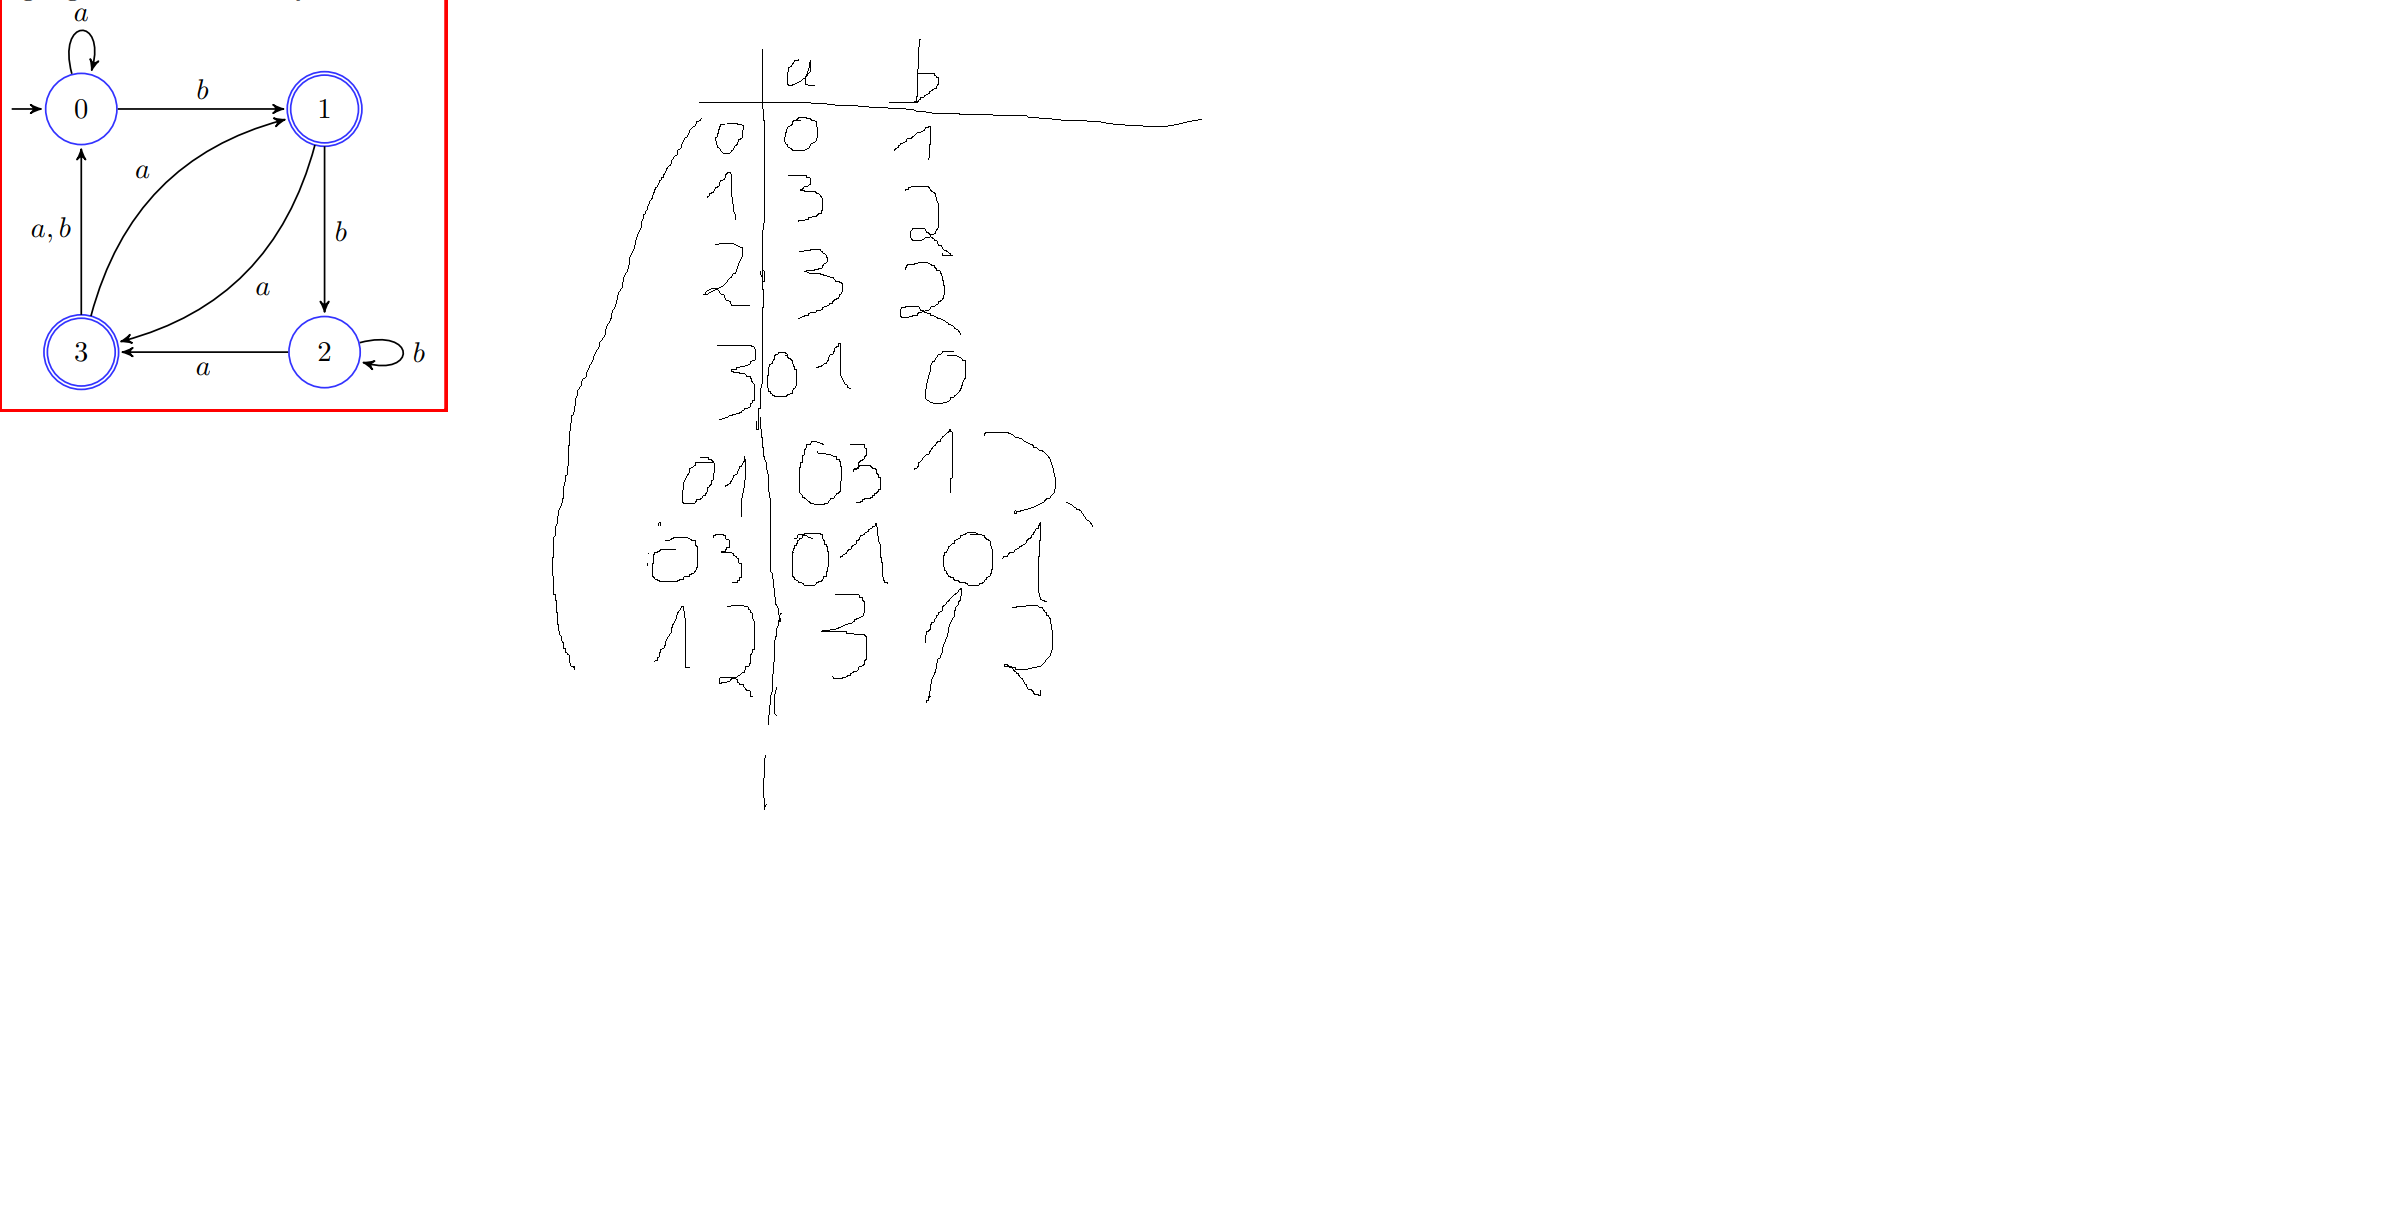 a
0 b 1
a
a, b
b
a
3 a 2 b
a b
0 0 1
1 3 2
2 3 2
3 01 0
01 03 12
03 01 01
12 3 12